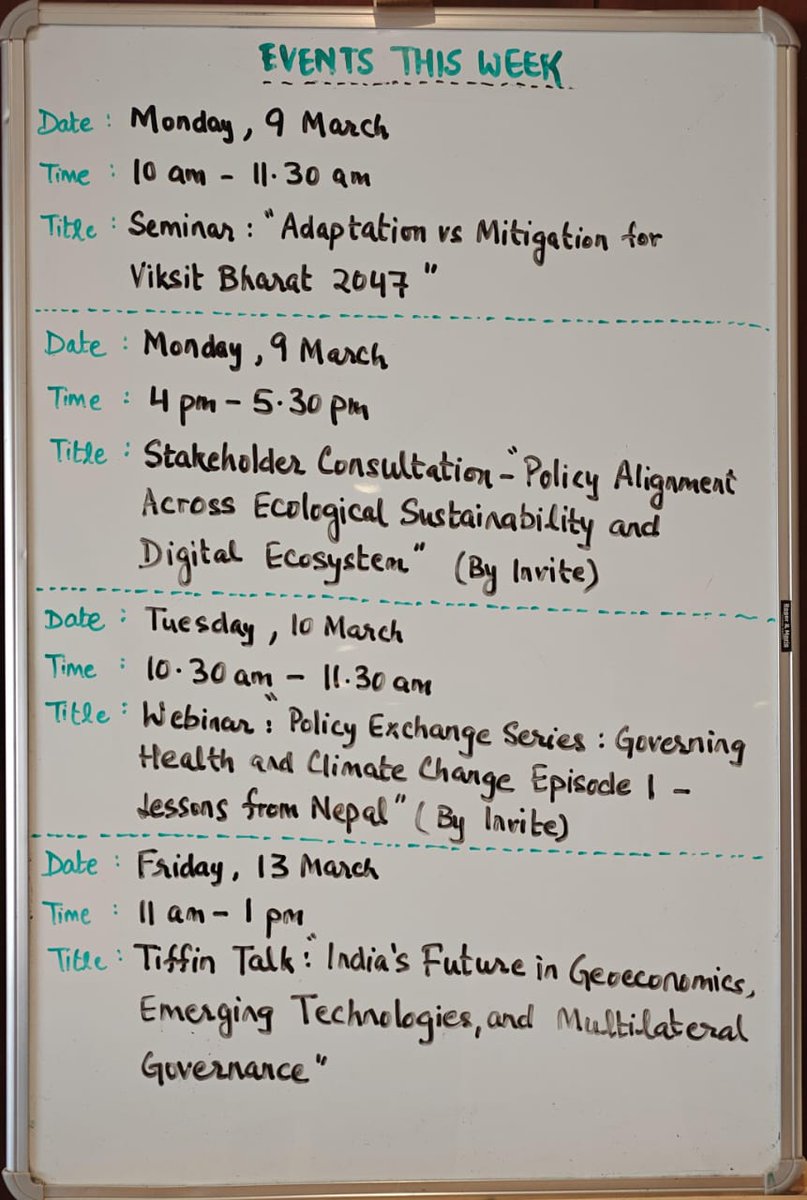 EVENTS THIS WEEK
Date : Monday, 9 March
Time : 10 am - 11.30 am
Title : Seminar : "Adaptation vs Mitigation for
Viksit Bharat 2047"
Date : Monday, 9 March
Time : 4 pm - 5.30 pm
Title : Stakeholder Consultation - "Policy Alignment
Across Ecological Sustainability and
Digital Ecosystem" (By Invite)
Date : Tuesday, 10 March
Time : 10.30 am - 11.30 am
Title : Webinar : "Policy Exchange Series : Governing
Health and Climate Change Episode 1 -
Lessons from Nepal" (By Invite)
Date : Friday, 13 March
Time : 11 am - 1 pm
Title : Tiffin Talk : "India's Future in Geoeconomics,
Emerging Technologies, and Multilateral
Governance"